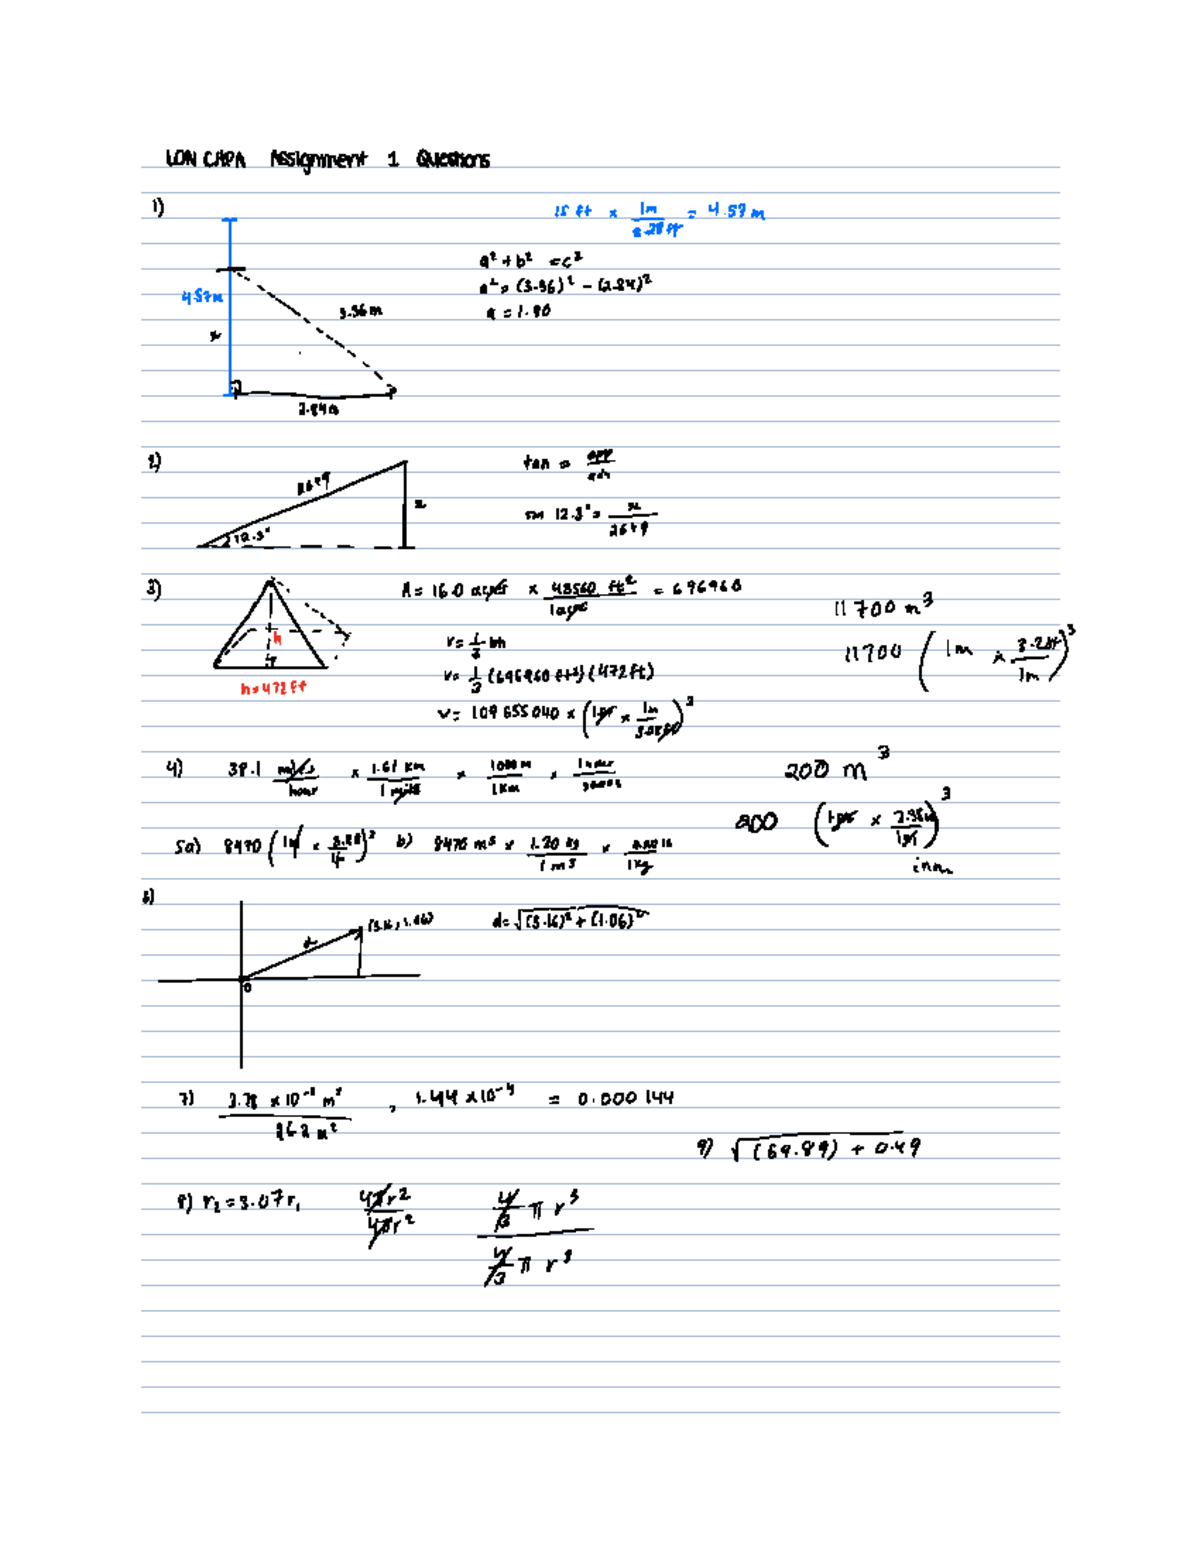 LON CAPA Assignment 1 Questions
1)
15 ft × 1m / 3.28 ft = 4.57 m
a² + b² = c²
a² = (3.36)² - (2.84)²
a = 1.80
4.57m
3.36m
x
2.84m
2)
2649
x
12.3°
tan = opp / adj
sin 12.3° = x / 2649
3)
h
h=472ft
A = 16.0 acres × 43560 ft² / 1 acre = 696960
V = 1/3 bh
V = 1/3 (696960 ft²) (472ft)
V = 109655040 × (1ft × 1m / 3.28ft)³
11700 m³
11700 (1m × 3.28ft / 1m)³
4) 38.1 miles / hour × 1.61 km / 1 mile × 1000m / 1km × 1 hour /
200 m³
200
5a) 8470 b) 8470 m³ × 1.20 kg / 1 m³ × / 1kg
6)
(3.16, 1.06)
d
0
d = √(3.16)² + (1.06)²
7) , 1.44 × 10⁻⁴ = 0.000144
9) √(69.89) + 0.49
8) r₂ = 3.07r₁ 4πr² / 4πr² 4/3 π r³ / 4/3 π r³